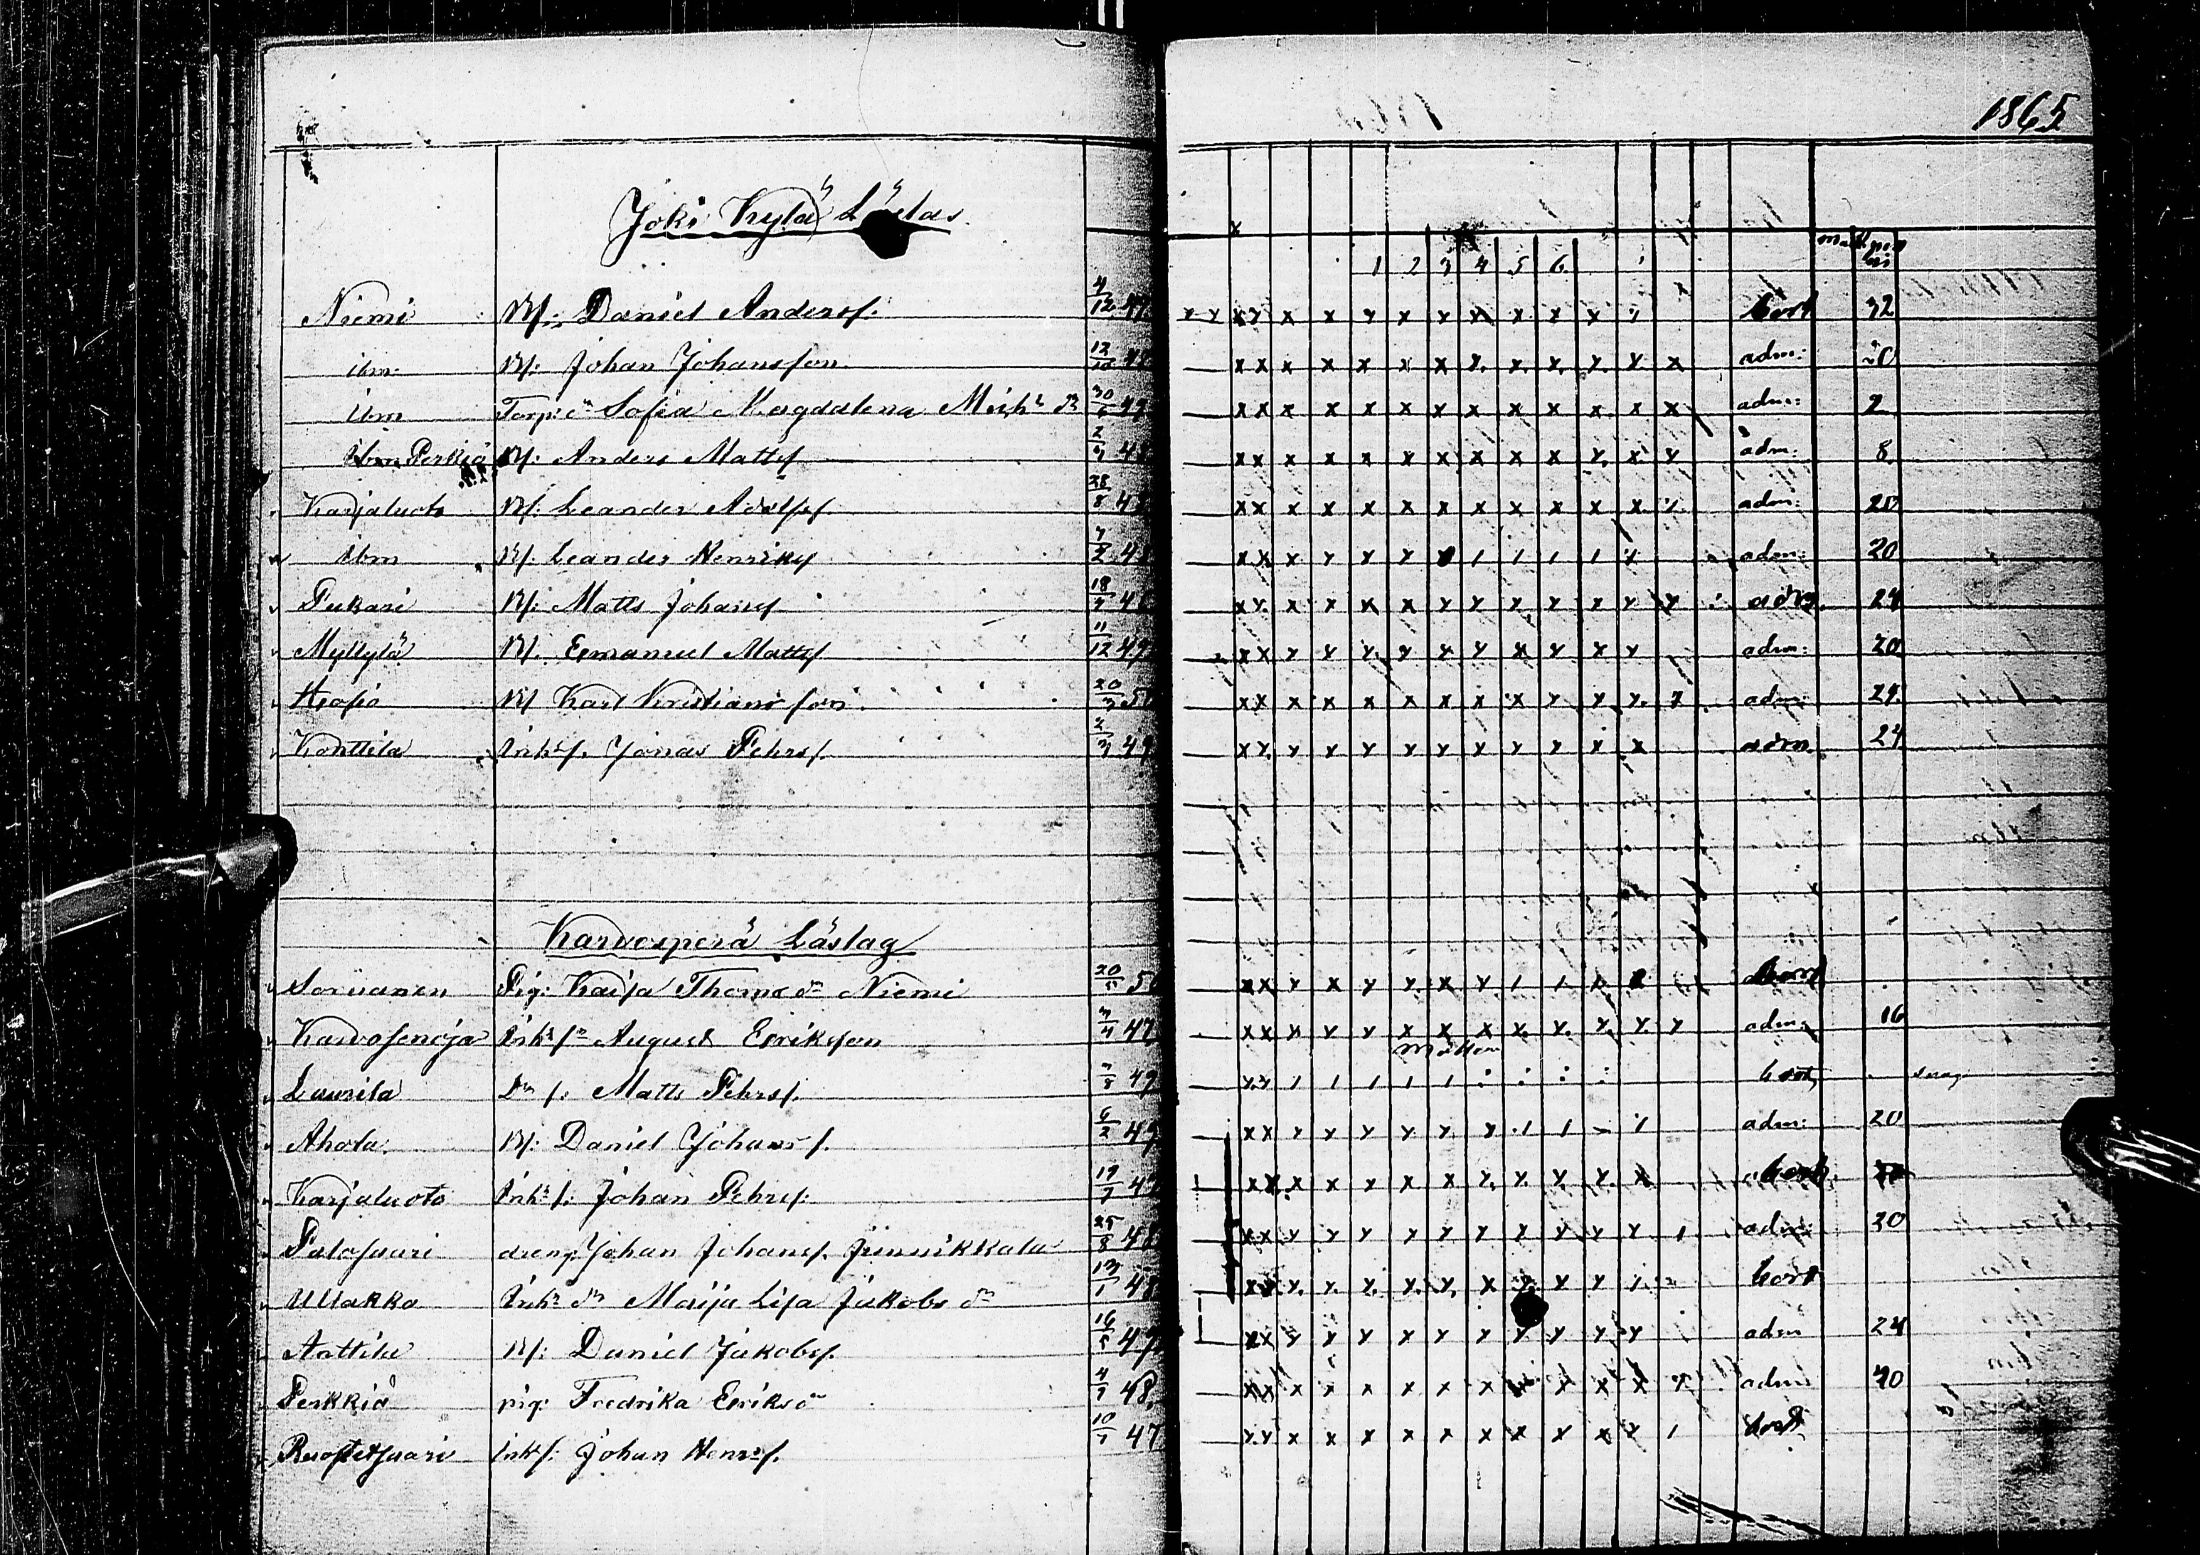 1865
Joki Kylä
1 2 3 4 5 6
Niemi Bf: Daniel Andersf. 4/12 47 x x x x x x x x x x x x x bort 32
ibm Bf: Johan Johansson. 12/10 x x x x x x x x x x x x x x adm: 20
ibm Torp: dr Sofia Magdalena Michs dr 30/6 49 x x x x x x x x x x x x x x adm: 2
ibm Perkiö Bf: Anders Mattsf 2/9 48 x x x x x x x x x x x x x x adm: 8
Karjaluoto Bf: Leander Adolfsf. 28/8 48 x x x x x x x x x x x x x adm: 20
ibm Bf: Leander Henriksf 7/2 48 x x x x x x adm: 20
Pukari Bf: Matts Johansf 18/7 48 x x x x x x x x x x x x x x adm. 24
Myllylä Bf. Emanuel Mattsf 11/12 49 x x x x x x x x x x x x x adm: 20
Bf Karl Kristiansson. 20/3 50 x x x x x x x x x x x x x adm: 24
Konttila Inhs f. Jonas Pehrsf. 2/3 49 x x x x x x x x x x x x x adm 24
Karvosperä Läslag
Sorvanen Pig: Kaisa Thoms dr Niemi 20/5 50 x x x x x x x x 1 1 bort
Karvosenoja Inhs sn August Eriksson 3/4 47 x x x x x x x x x x x x x x adm: 16
Laurila Dr f. Matts Pehrsf. 3/8 49 x x 1 1 1 1 1 : : : : bort
Ahola Bf: Daniel Johans f. 6/2 49 x x x x x x x x 1 1 – adm: 20
Karjaluoto Inhs f. Johan Pehrsf. 19/7 49 x x x x x x x x x x x x x bort
Palosaari dreng Johan Johansf. Junnikkala 25/8 48 x x x x x x x x x x x x x 1 adm: 20
Ullakko Inhs dr Maija Lisa Jakobs dr 13/1 48 x x x x x x x x x x x bort
Anttila Bf: Daniel Jakobsf. 16/5 49 x x x x x x x x x x x x x adm 24
Perkkiö pig: Fredrika Eriksd 4/7 48. x x x x x x x x x x x x x x adm 40
Inhs f: Johan Henrsf. 10/7 47 x x x x x x x x x x x x x 1 bort